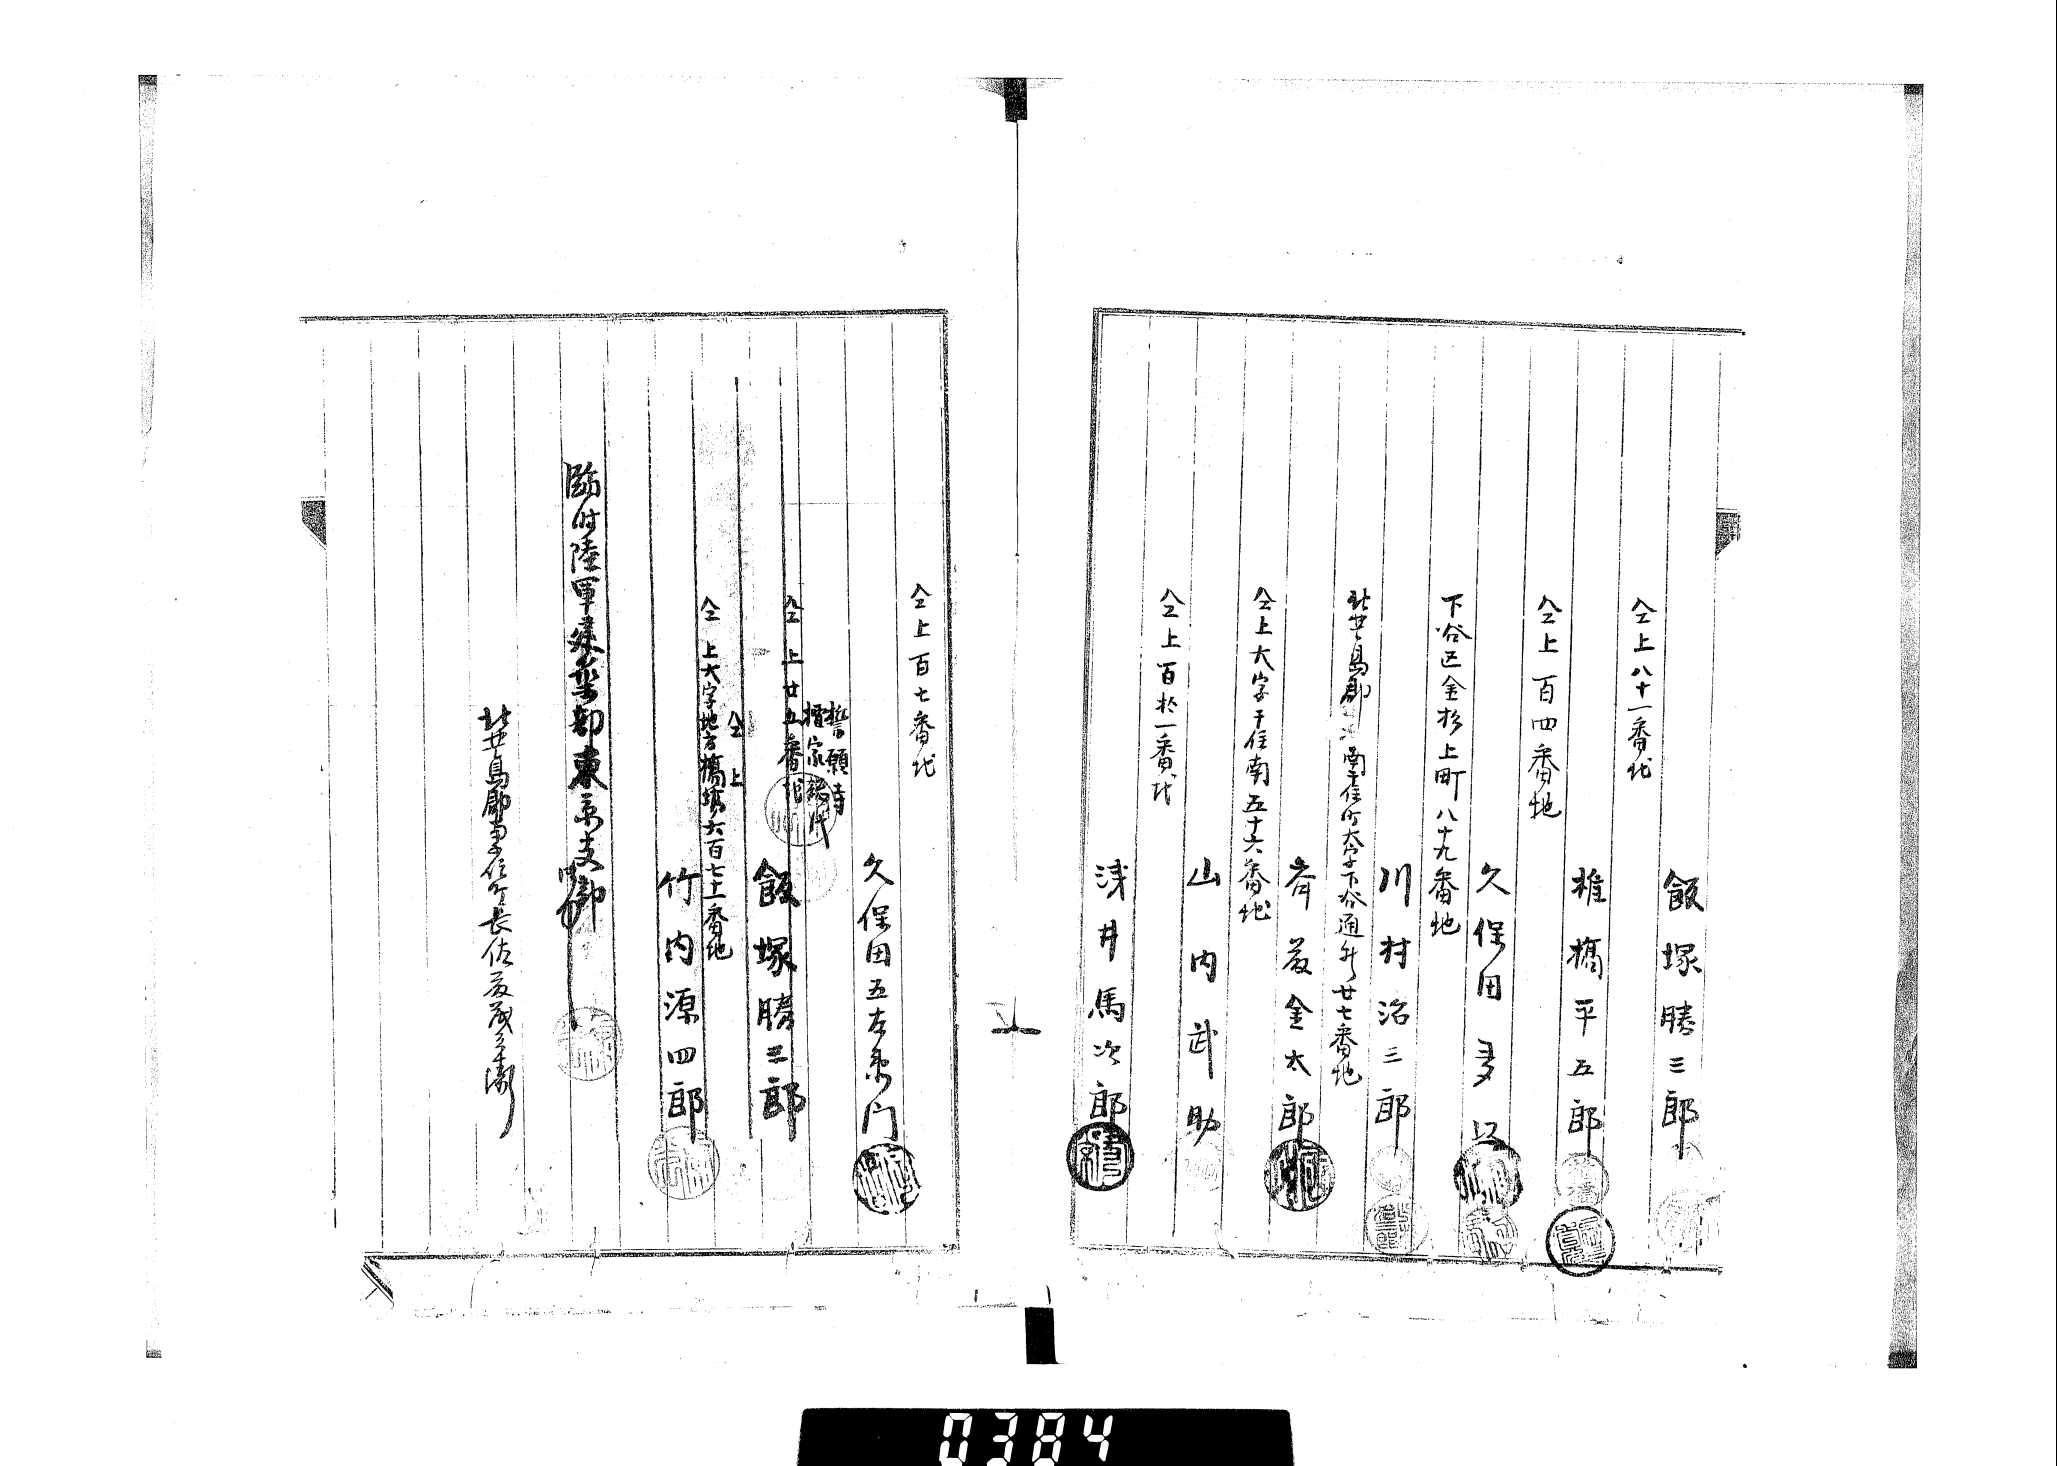 仝上八十一番地
飯塚勝三郎
仝上百四番地
椎橋平五郎
下谷区金杉上町八十九番地
久保田
北豊島郡南千住町大字下谷通新廿七番地
川村治三郎
仝上大字千住南五十六番地
斉藤金太郎
山内武助
仝上百 一番地
浅井馬次郎
仝上百七番地
久保田五左衛門
誓願寺
檀家総代
仝上廿五番地
飯塚勝三郎
仝上
仝上大字地方橋場六百七十一番地
竹内源四郎
臨時陸軍建築部東京支部
北豊島郡南千住町長佐藤
0384